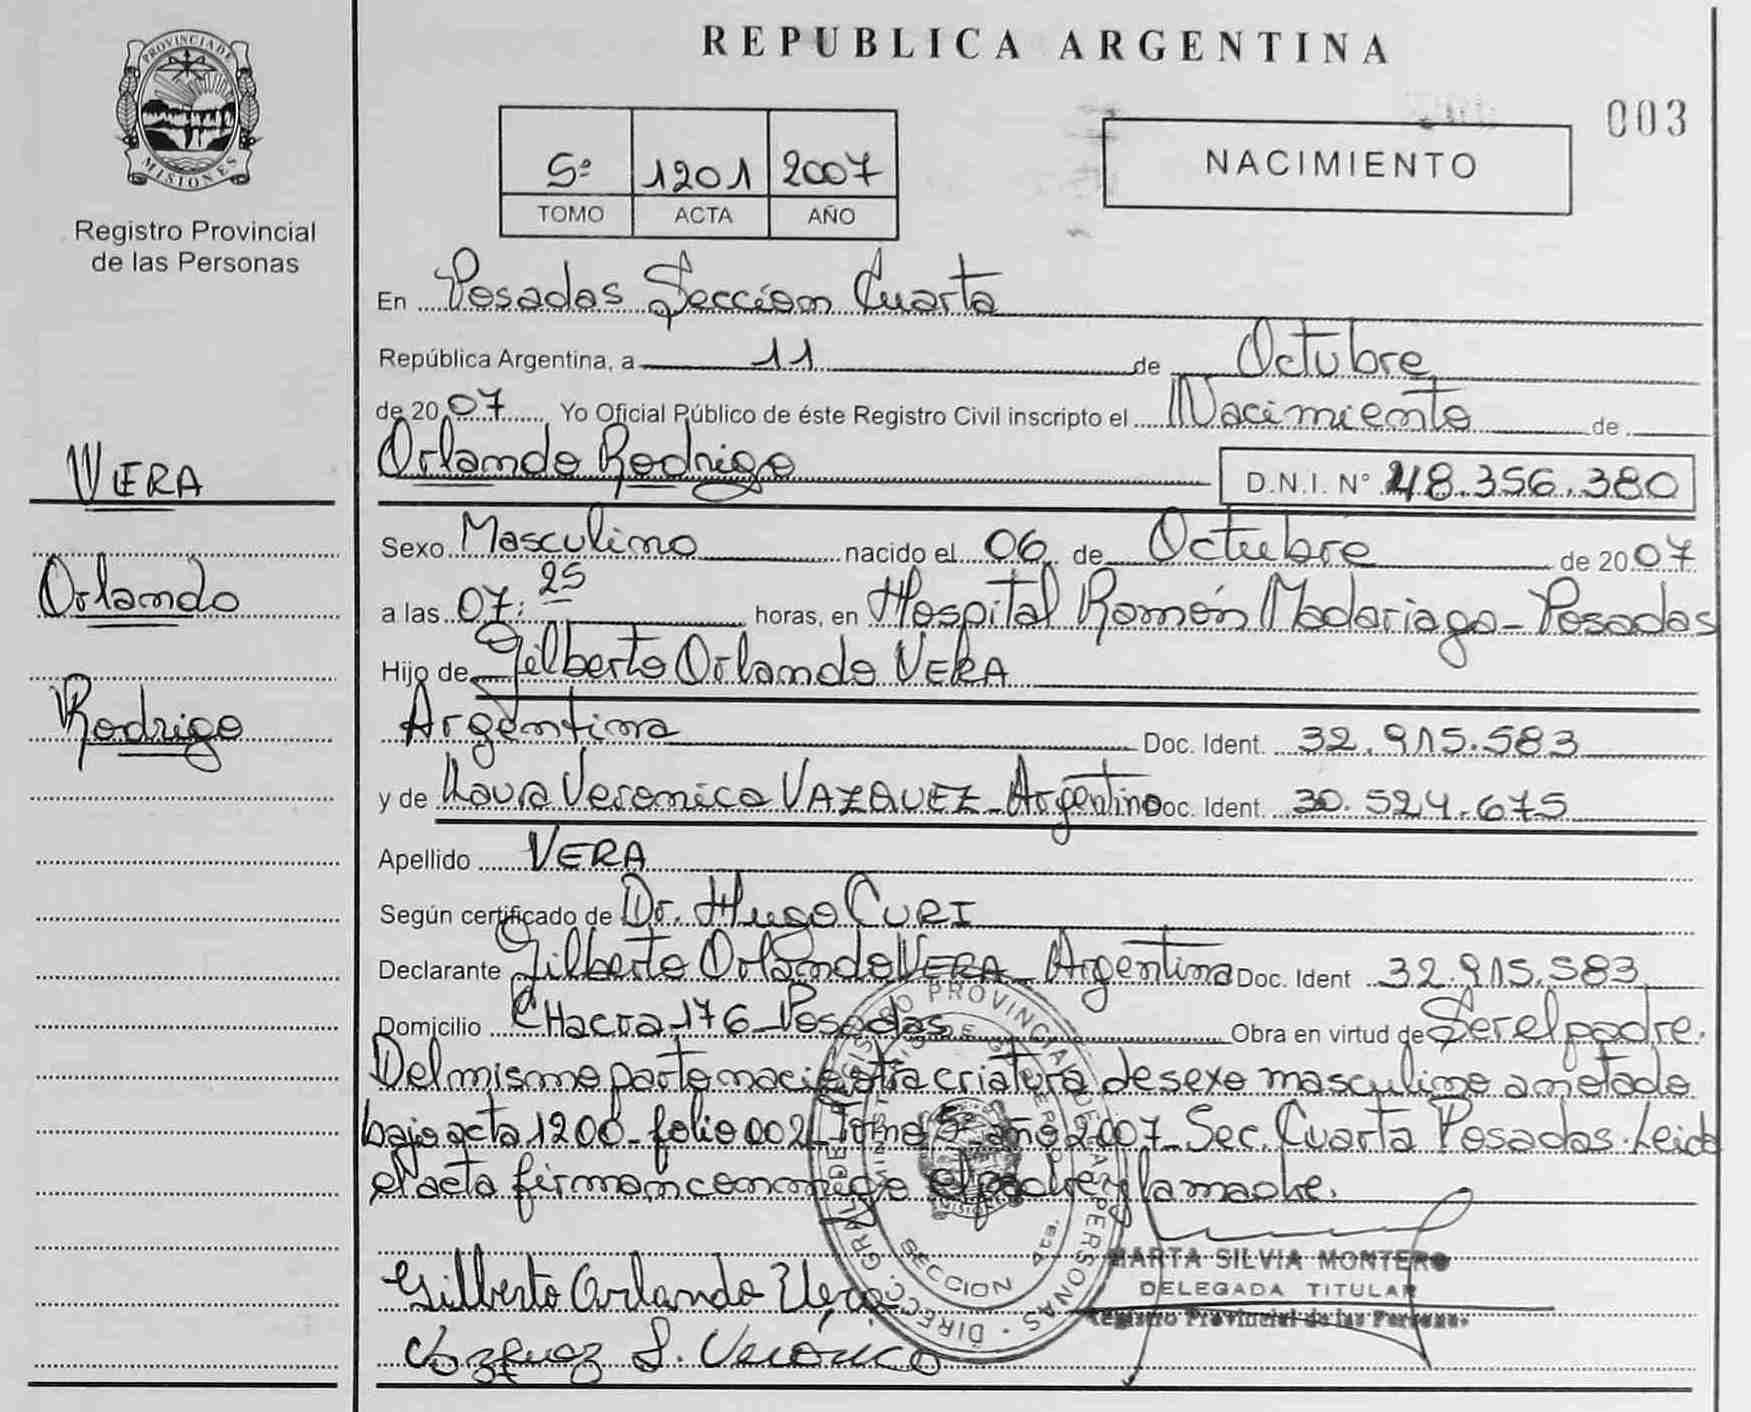 REPUBLICA ARGENTINA
PROVINCIA DE
MISIONES
Registro Provincial
de las Personas
003
5º 1201 2007
TOMO ACTA AÑO
NACIMIENTO
En Posadas Sección Cuarta
República Argentina, a 11 de Octubre
de 2007 Yo Oficial Público de éste Registro Civil inscripto el Nacimiento de
VERA
Orlando Rodrigo D.N.I. Nº 48.356.380
Sexo Masculino nacido el 06 de Octubre de 2007
Orlando
a las 07:25 horas, en Hospital Ramón Madariaga - Posadas
Hijo de Gilberto Orlando VERA
Rodrigo
Argentina Doc. Ident. 32.915.583
y de Laura Veronica VAZQUEZ - Argentina Doc. Ident. 30.524.675
Apellido VERA
Según certificado de Dr. Hugo CURI
Declarante Gilberto Orlando VERA - Argentina Doc. Ident 32.915.583
Domicilio CHacra 176 - Posadas Obra en virtud de Ser el padre.
Del mismo parto nació otra criatura de sexo masculino anotado
bajo acta 1200 - folio 002 - Tomo 5º - año 2007 - Sec. Cuarta Posadas. Leida
el acta firman conmigo el padre y la madre.
MARTA SILVIA MONTERO
DELEGADA TITULAR
Registro Provincial de las Personas
Gilberto Orlando Vera
Vazquez L. Verónica
SECCION